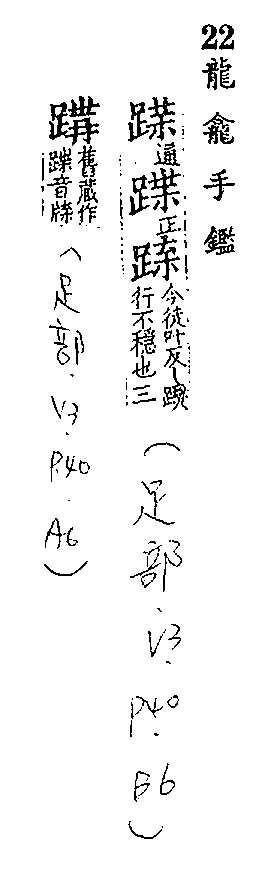 22龍龕手鑑
蹀通蹀正𨁹今徒叶反〻蹀行不穩也三(足部.V3.P.40.B6)
舊藏作蹀音牒(足部.V3.P.40.A6)